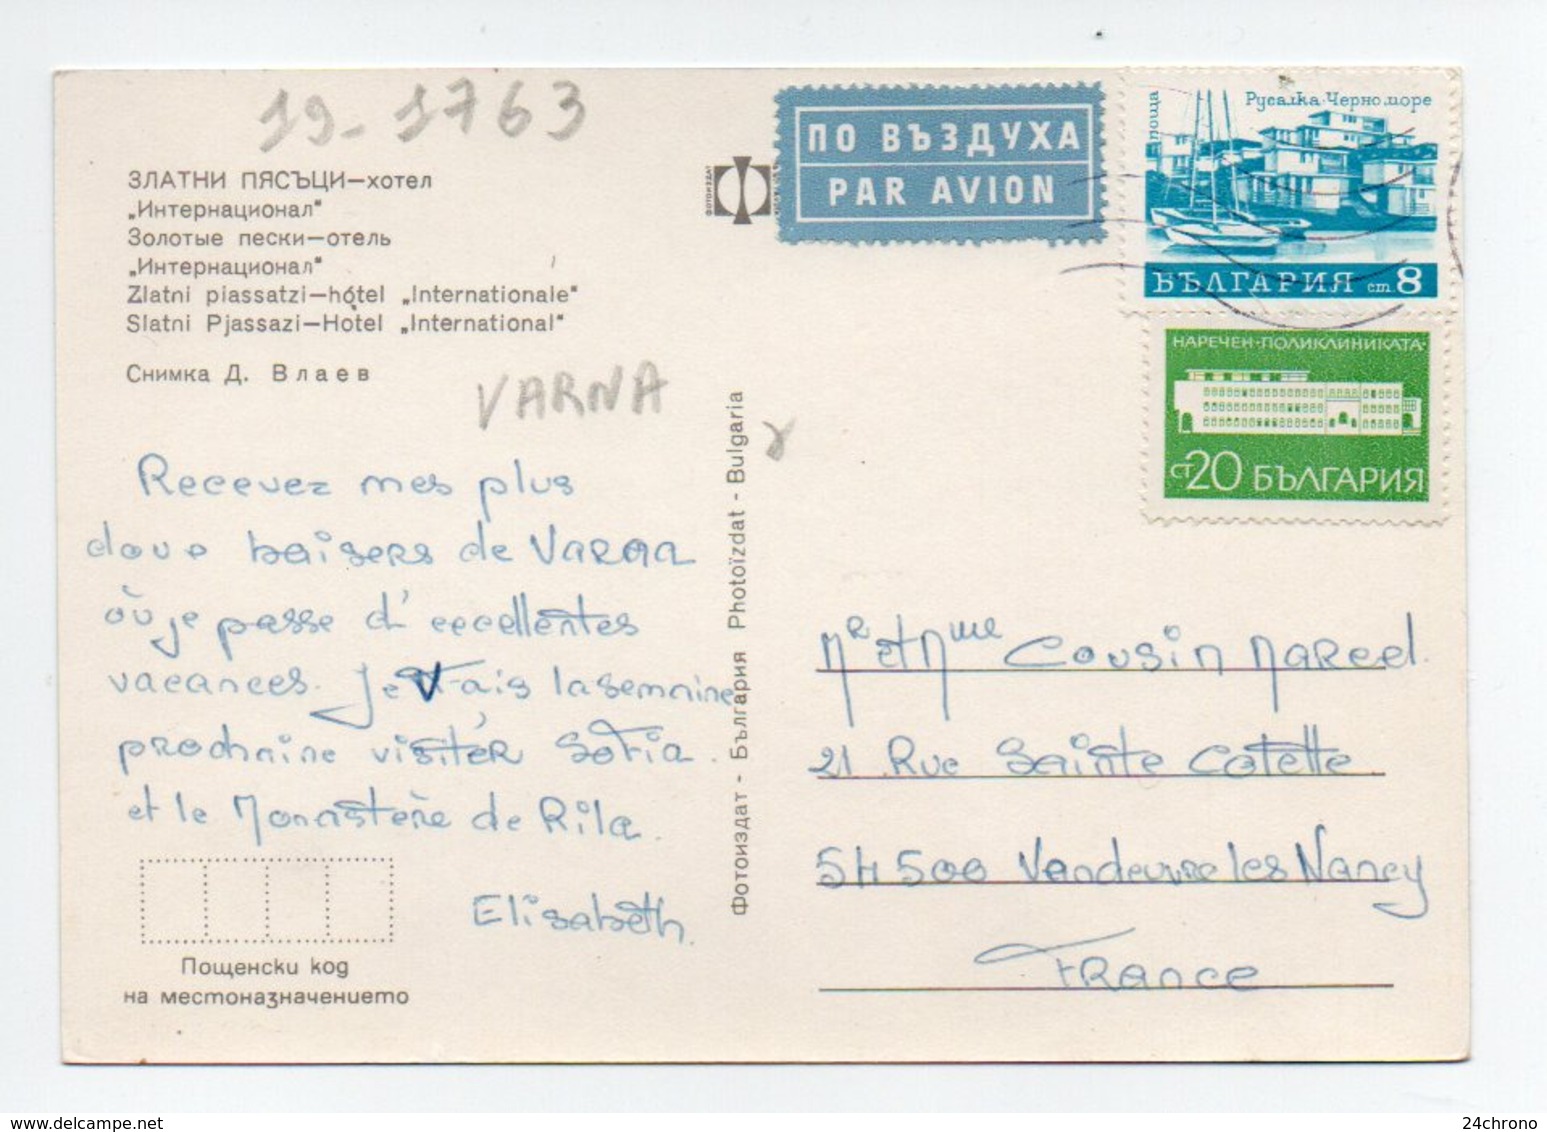 19-1763
ЗЛАТНИ ПЯСЪЦИ—хотел
„Интернационал"
Золотые пески—отель
„Интернационал"
Zlatni piassatzi—hótel „Internationale"
Slatni Pjassazi—Hotel „International"
Снимка Д. Влаев
VARNA
Recevez mes plus
doux baisers de VARNA
où je passe d'excellentes
vacances. Je vais la semaine
prochaine visiter Sofia.
et le Monastère de Rila.
Elisabeth.
Пощенски код
на местоназначението
Фотоиздат - България Photoïzdat - Bulgaria
ФОТОИЗДАТ
ПО ВЪЗДУХА
PAR AVION
поща
Русалка·Черно море
БЪЛГАРИЯ ст 8
НАРЕЧЕН·ПОЛИКЛИНИКАТА·
СТ 20 БЪЛГАРИЯ
Mr et Mme Cousin Marcel.
21 Rue Sainte Colette
54 500 Vandeuvre les Nancy
France
24chrono